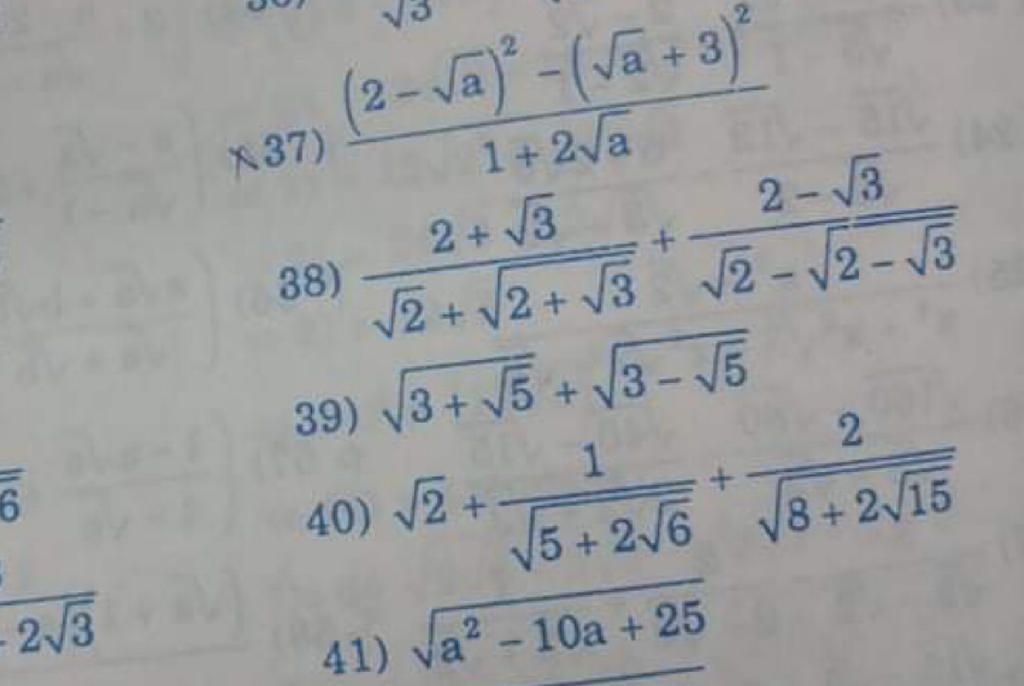 √3
37) ((2 - √a)² - (√a + 3)²) / (1 + 2√a)
38) (2 + √3) / (√2 + √(2 + √3)) + (2 - √3) / (√2 - √(2 - √3))
39) √(3 + √5) + √(3 - √5)
6
40) √2 + 1 / √(5 + 2√6) + 2 / √(8 + 2√15)
2√3
41) √(a² - 10a + 25)